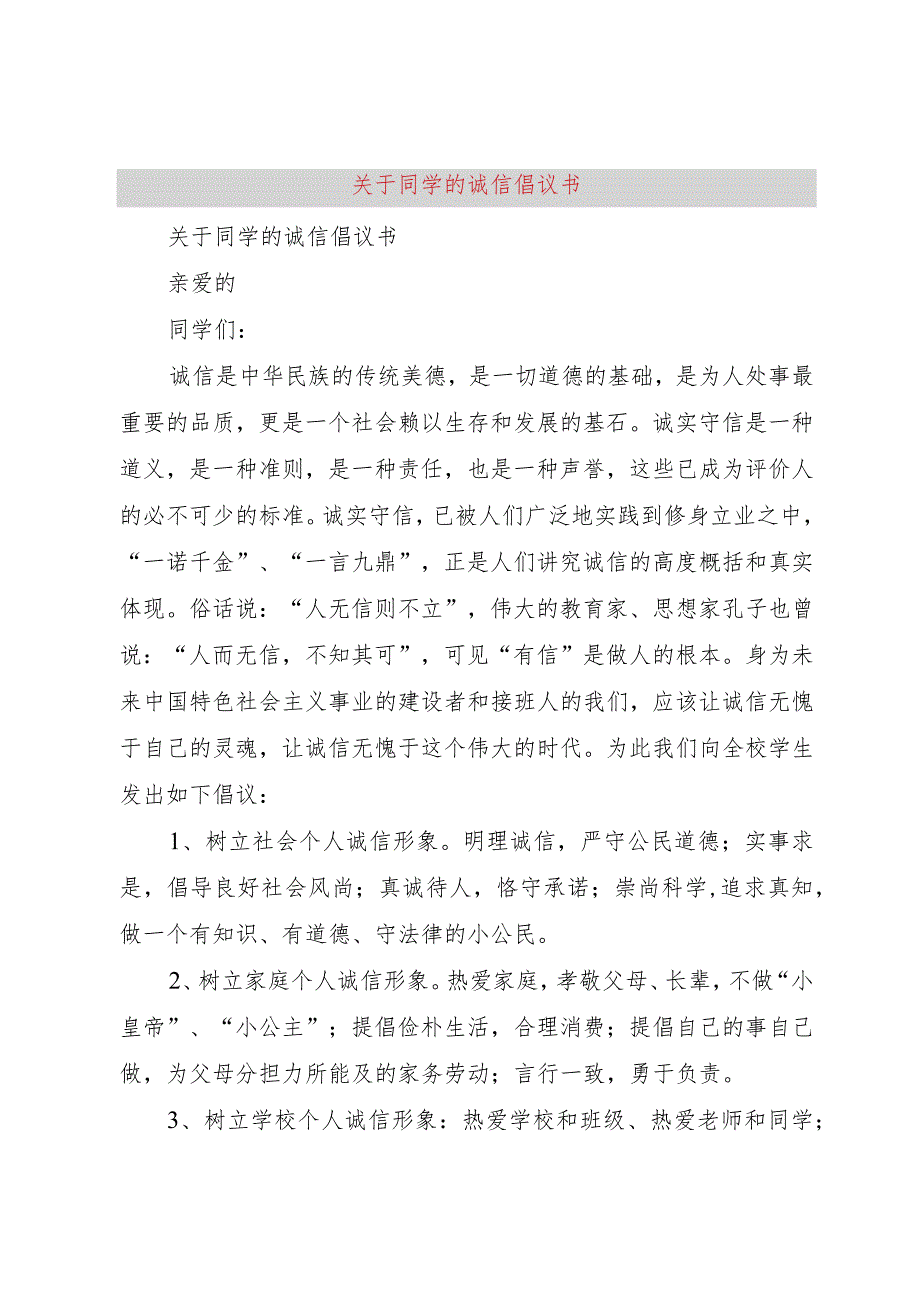 关于同学的诚信倡议书
关于同学的诚信倡议书
亲爱的
同学们：
诚信是中华民族的传统美德，是一切道德的基础，是为人处事最
重要的品质，更是一个社会赖以生存和发展的基石。诚实守信是一种
道义，是一种准则，是一种责任，也是一种声誉，这些已成为评价人
的必不可少的标准。诚实守信，已被人们广泛地实践到修身立业之中，
“一诺千金”、“一言九鼎”，正是人们讲究诚信的高度概括和真实
体现。俗话说：“人无信则不立”，伟大的教育家、思想家孔子也曾
说：“人而无信，不知其可”，可见“有信”是做人的根本。身为未
来中国特色社会主义事业的建设者和接班人的我们，应该让诚信无愧
于自己的灵魂，让诚信无愧于这个伟大的时代。为此我们向全校学生
发出如下倡议：
1、树立社会个人诚信形象。明理诚信，严守公民道德；实事求
是，倡导良好社会风尚；真诚待人，恪守承诺；崇尚科学,追求真知，
做一个有知识、有道德、守法律的小公民。
2、树立家庭个人诚信形象。热爱家庭，孝敬父母、长辈，不做“小
皇帝”、“小公主”；提倡俭朴生活，合理消费；提倡自己的事自己
做，为父母分担力所能及的家务劳动；言行一致，勇于负责。
3、树立学校个人诚信形象：热爱学校和班级、热爱老师和同学；